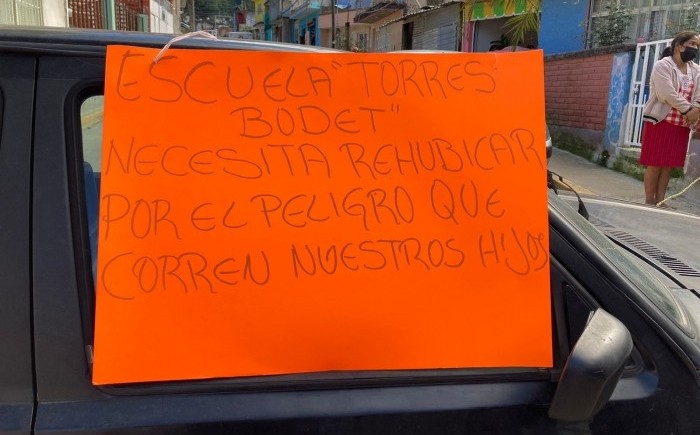 ESCUELA "TORRES
BODET"
NECESITA REHUBICAR
POR EL PELIGRO QUE
CORREN NUESTROS HIJOS